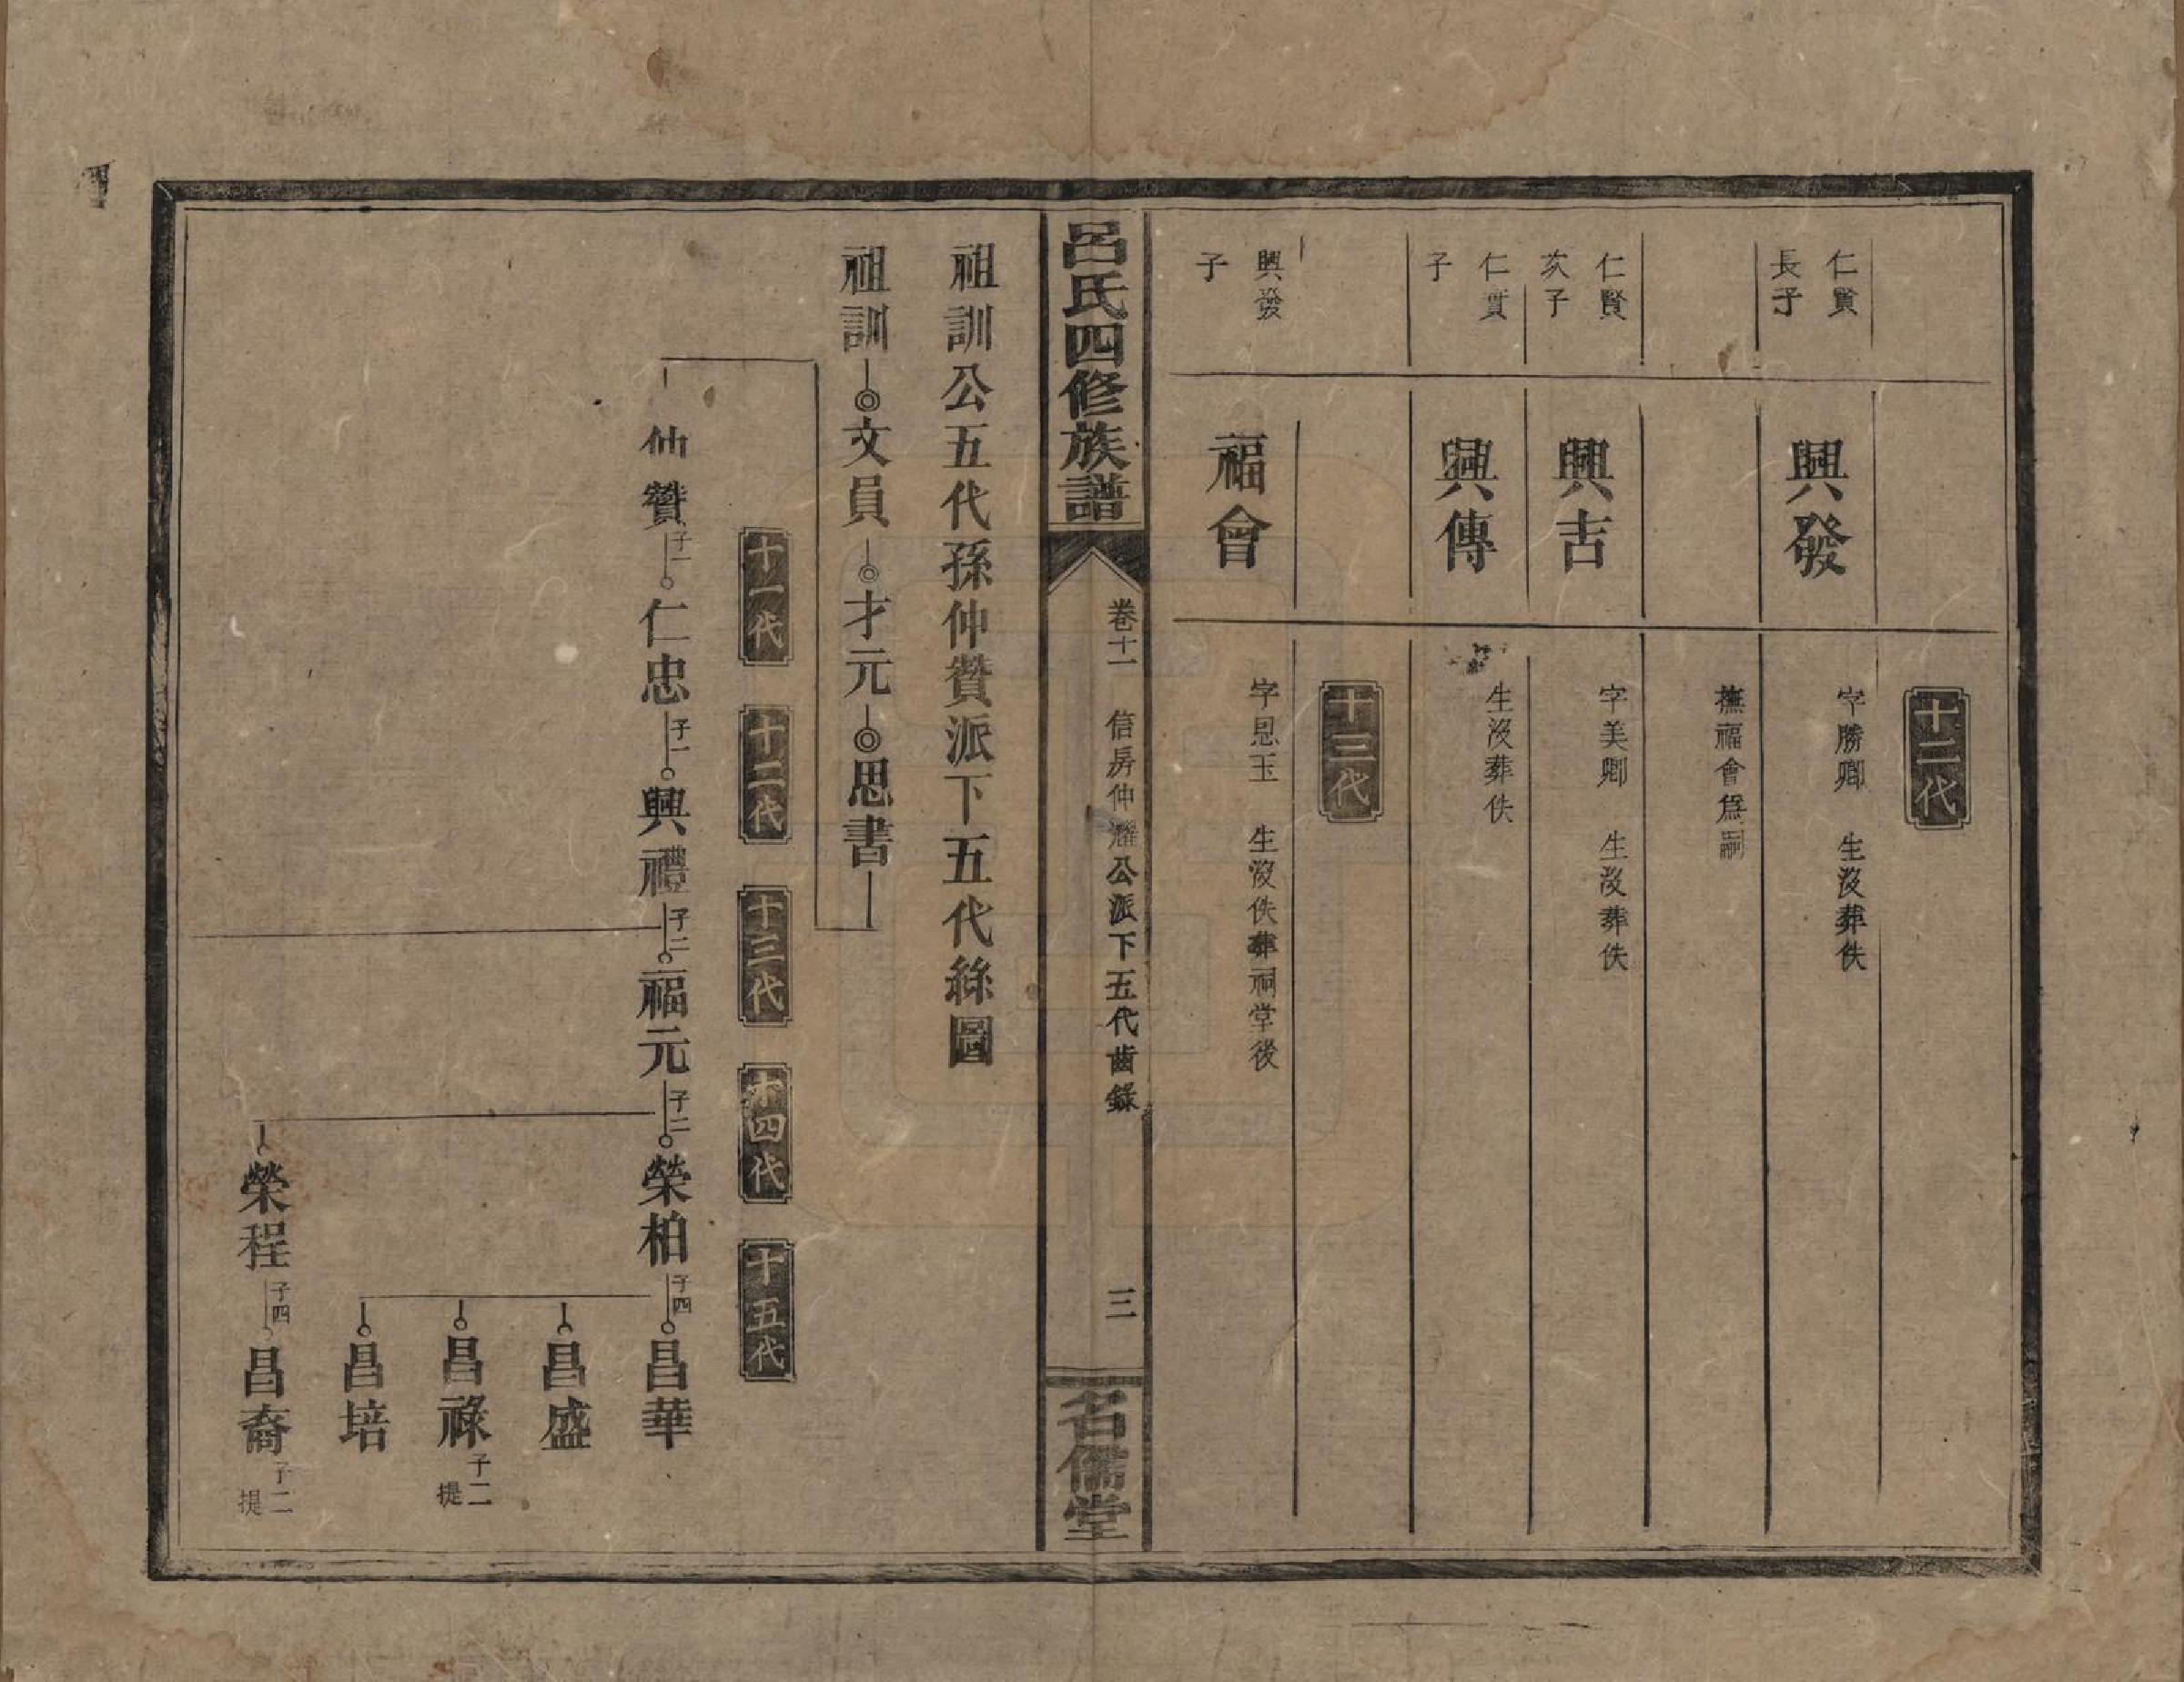 十二代
仁賢長子
興發
字勝卿 生沒葬佚
撫福會爲嗣
仁賢次子
興吉
字美卿 生沒葬佚
仁實子
興傳
生沒葬佚
十三代
興發子
福會
字恩玉 生沒佚葬祠堂後
呂氏四修族譜
卷十一 信房仲潘公派下五代齒錄
三
名儒堂
祖訓公五代孫仲贊派下五代絲圖
祖訓 文員 才元 思書
十一代 十二代 十三代 十四代 十五代
仲贊 子一 仁忠 子一 興禮 子二 福元 子二 榮柏 子四 昌華
昌盛
昌祿 子二 提
昌培
榮程 子四 昌裔 子二 提